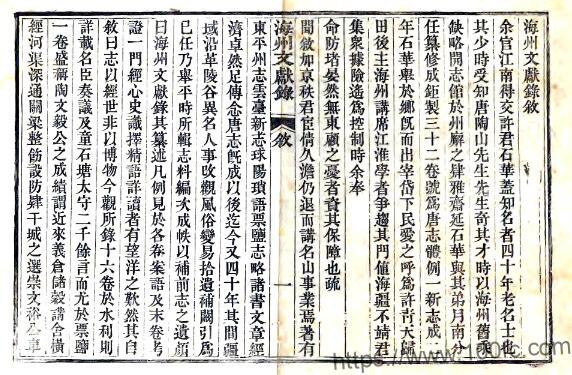 海州文獻錄敘
余官江南得交許君石華蓋知名者四十年老名士也
其少時受知唐陶山先生先生奇其才時以海州舊乘
缺略開志館於州廨之肆雅齋延石華與其弟月南分
任纂修成鉅製三十二卷號爲唐志體例一新志成二
年石華舉於鄉旣而出宰岱下民愛之呼爲許靑天歸
田後主海州講席江淮學者爭趨其門値海疆不靖君
集衆據險遙爲控制時余奉
命防堵晏然無東顧之憂者資其保障也疏
聞敘加京秩君臣情久澹仍退而講名山事業焉著有
海州文獻錄 敘 一
東平州志雲臺新志球陽瑣語票鹽志略諸書文章經
濟卓然足傳念唐志旣成以後迄今又四十年其間疆
域沿革陵谷異名人事攺觀風俗變易拾遺補闕引爲
已任乃舉平時所輯志料編次成帙以補前志之遺顏
曰海州文獻錄其纂述凡例見於各卷案語及末卷考
證一門經心史識擇精語詳讀者有望洋之歎然其自
敘曰志以經世非以博物今觀所錄十六卷於水利則
詳載名臣奏議及童石塘太守二千餘言而尤於票鹽
一卷盛稱陶文毅公之成績謂近來義倉儲穀講舍橫
經河渠深通關梁整飭設防肆干城之選崇文裕公車